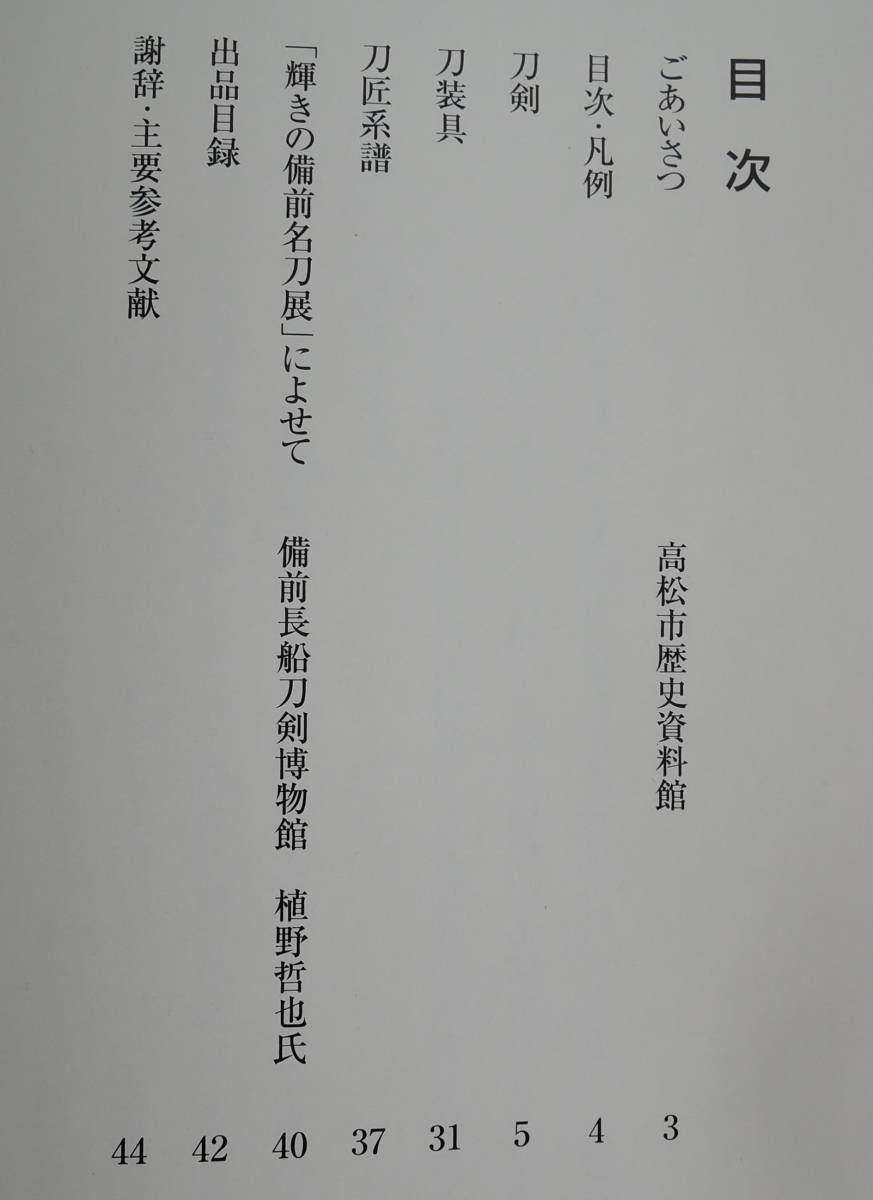 目次
ごあいさつ 高松市歴史資料館 3
目次・凡例 4
刀剣 5
刀装具 31
刀匠系譜 37
「輝きの備前名刀展」によせて 備前長船刀剣博物館 植野哲也氏 40
出品目録 42
謝辞・主要参考文献 44